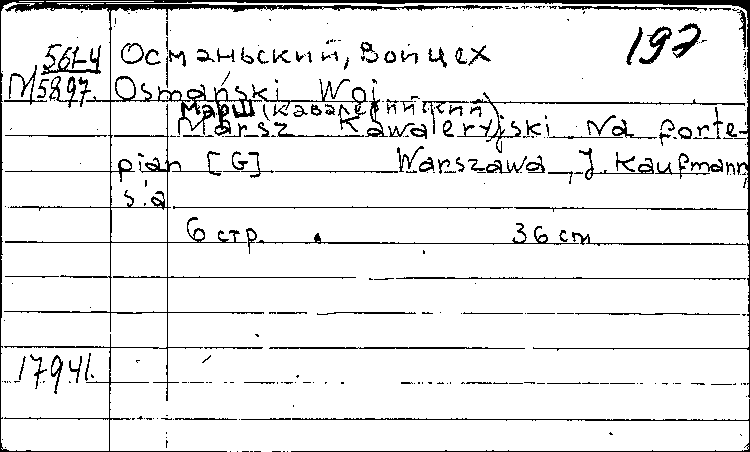 561-4 Османьский, Войцех 197
М/5897. Osmański Woj
Марш (кавалерийский)
Marsz Kawaleryjski na forte-
pian [G]. Warszawa, J. Kaufmann,
s.a.
6 стр. 36 cm
17941.